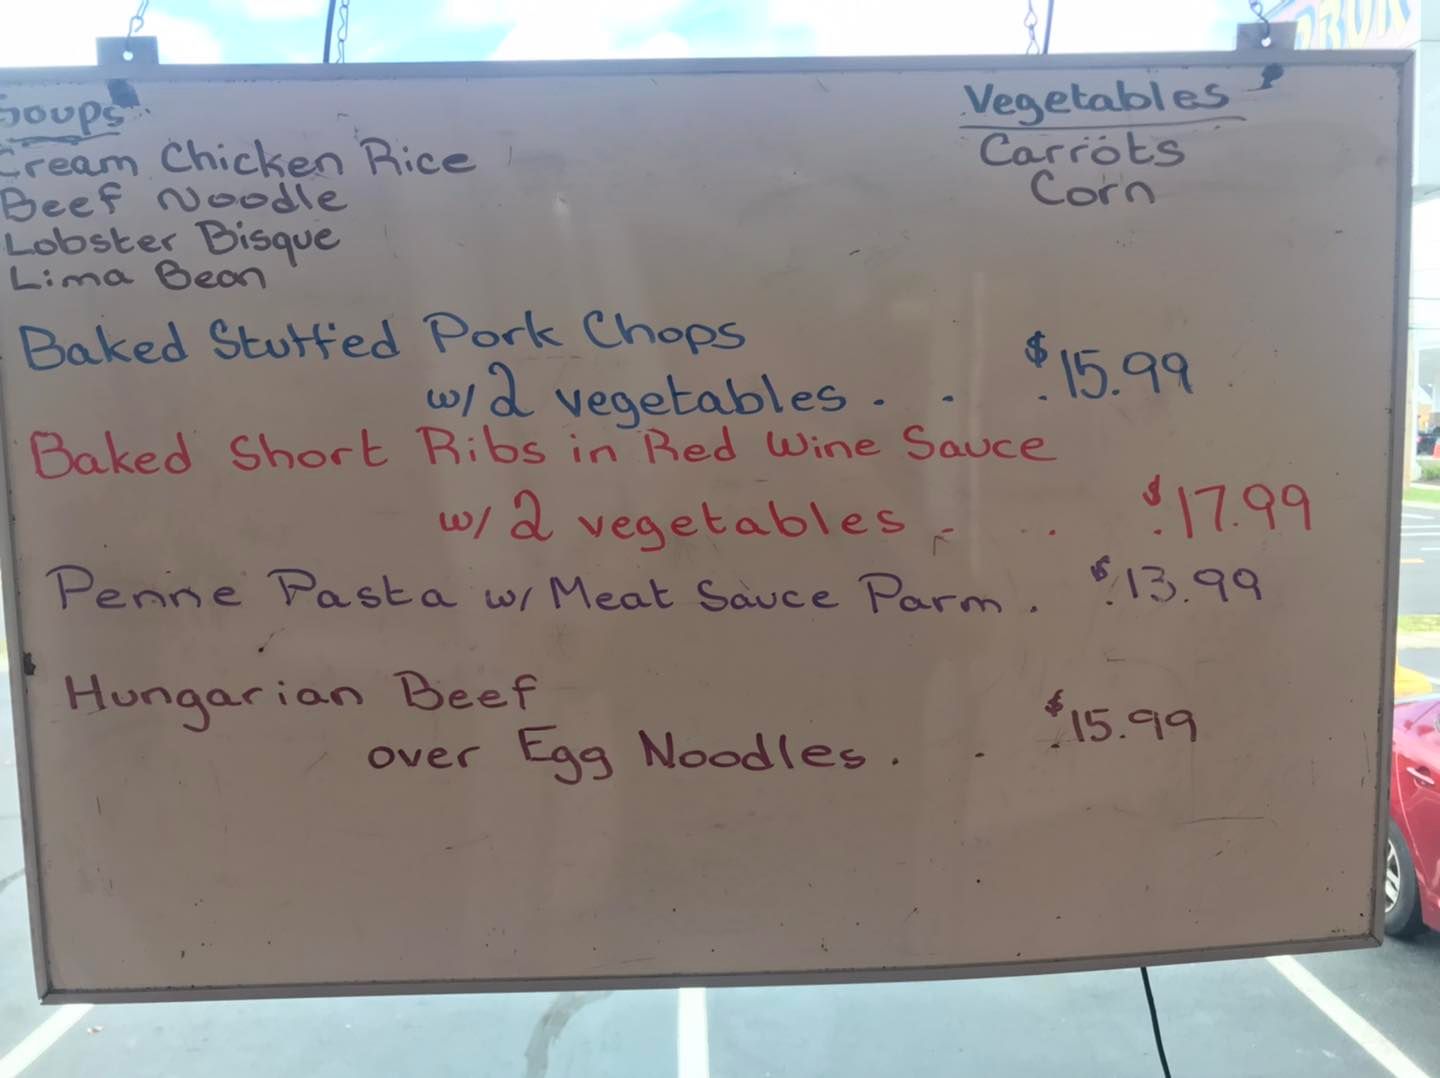 Soups
Cream Chicken Rice
Beef Noodle
Lobster Bisque
Lima Bean
Vegetables
Carrots
Corn
Baked Stuffed Pork Chops
w/ 2 vegetables . . . $15.99
Baked Short Ribs in Red Wine Sauce
w/ 2 vegetables . . . $17.99
Penne Pasta w/ Meat Sauce Parm . . $13.99
Hungarian Beef
over Egg Noodles . . . $15.99